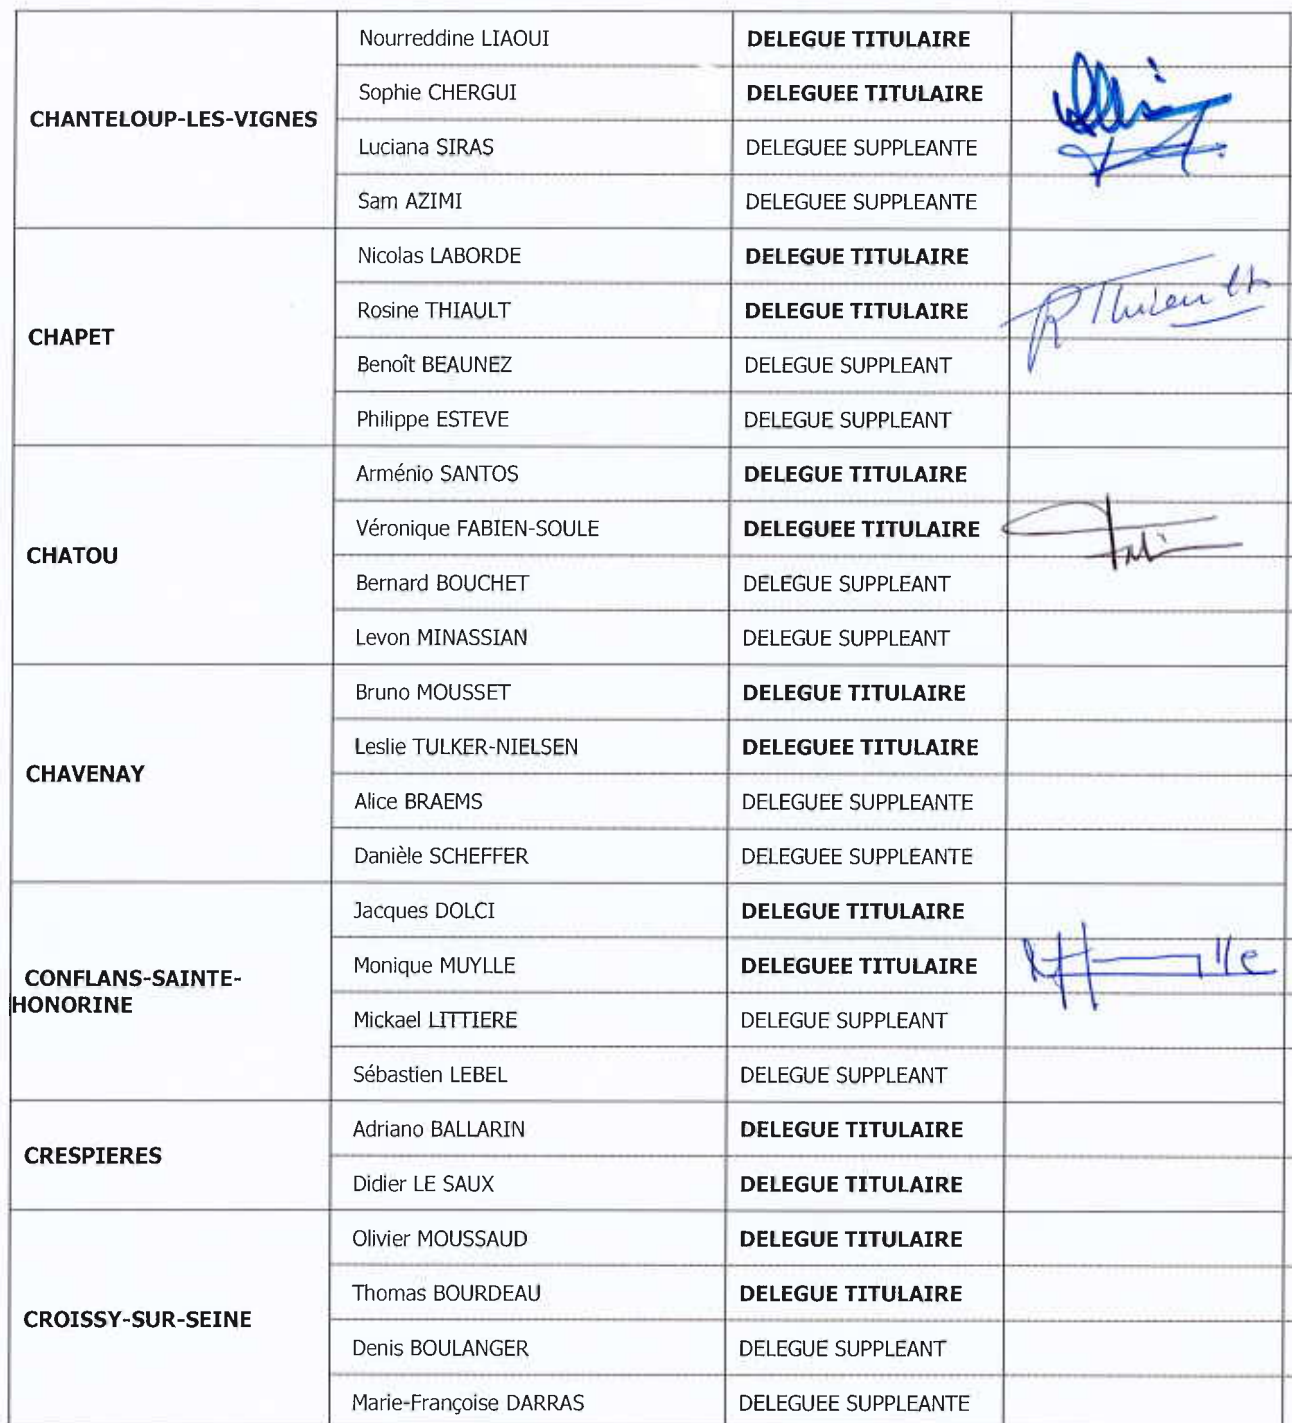 CHANTELOUP-LES-VIGNES
Nourreddine LIAOUI DELEGUE TITULAIRE
Sophie CHERGUI DELEGUEE TITULAIRE
Luciana SIRAS DELEGUEE SUPPLEANTE
Sam AZIMI DELEGUEE SUPPLEANTE
CHAPET
Nicolas LABORDE DELEGUE TITULAIRE
Rosine THIAULT DELEGUE TITULAIRE
Benoît BEAUNEZ DELEGUE SUPPLEANT
Philippe ESTEVE DELEGUE SUPPLEANT
CHATOU
Arménio SANTOS DELEGUE TITULAIRE
Véronique FABIEN-SOULE DELEGUEE TITULAIRE
Bernard BOUCHET DELEGUE SUPPLEANT
Levon MINASSIAN DELEGUE SUPPLEANT
CHAVENAY
Bruno MOUSSET DELEGUE TITULAIRE
Leslie TULKER-NIELSEN DELEGUEE TITULAIRE
Alice BRAEMS DELEGUEE SUPPLEANTE
Danièle SCHEFFER DELEGUEE SUPPLEANTE
CONFLANS-SAINTE-
HONORINE
Jacques DOLCI DELEGUE TITULAIRE
Monique MUYLLE DELEGUEE TITULAIRE
Mickael LITTIERE DELEGUE SUPPLEANT
Sébastien LEBEL DELEGUE SUPPLEANT
CRESPIERES
Adriano BALLARIN DELEGUE TITULAIRE
Didier LE SAUX DELEGUE TITULAIRE
CROISSY-SUR-SEINE
Olivier MOUSSAUD DELEGUE TITULAIRE
Thomas BOURDEAU DELEGUE TITULAIRE
Denis BOULANGER DELEGUE SUPPLEANT
Marie-Françoise DARRAS DELEGUEE SUPPLEANTE